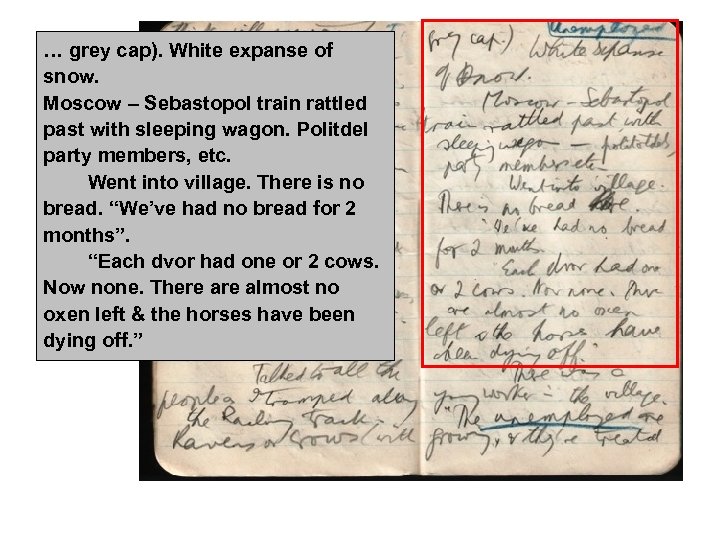 … grey cap). White expanse of
snow.
Moscow – Sebastopol train rattled
past with sleeping wagon. Politdel
party members, etc.
Went into village. There is no
bread. “We’ve had no bread for 2
months”.
“Each dvor had one or 2 cows.
Now none. There are almost no
oxen left & the horses have been
dying off. ”
Talked to all the
people I tramped along
the Railway track.
Ravens or crows with
Unemployed
grey cap.) White expanse
of snow.
Moscow – Sebastopol
train rattled past with
sleeping wagon – politotdels,
party members etc
Went into village.
There is no bread here.
"We've had no bread
for 2 months
Each dvor had one
or 2 cows. Now none. There
are almost no oxen
left & the horses have
been dying off."
There was a
young worker in the village.
"The unemployed are
growing, & they're treated